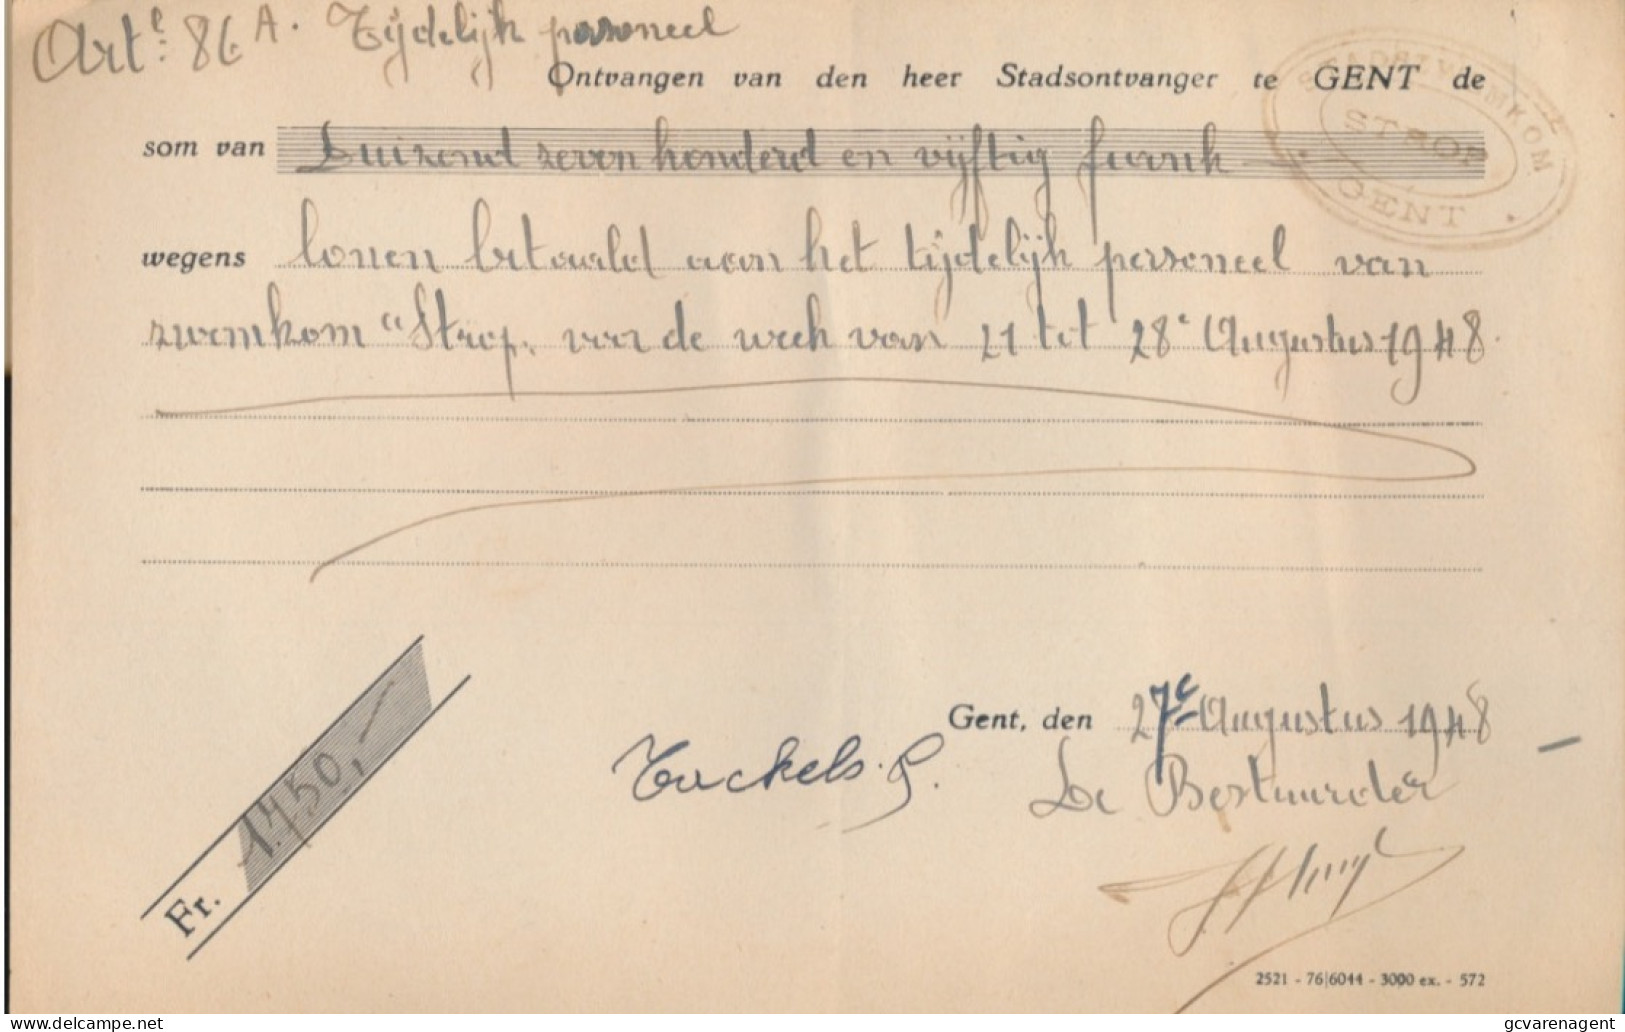 Artˡ: 86 A. Tijdelijk personeel
Ontvangen van den heer Stadsontvanger te GENT de
STADSZWEMKOM
STROP
GENT
som van Duizend zeven honderd en vijftig frank
wegens lonen betaald aan het tijdelijk personeel van
zwemkom "Strop. voor de week van 21 tot 28ᵉ Augustus 1948.
Gent, den 27ᵉ Augustus 1948
Tackels. G.
De Bestuurder
Fr. 1.750,-
2521 - 76|6044 - 3000 ex. - 572
https://www.delcampe.net
gcvarenagent